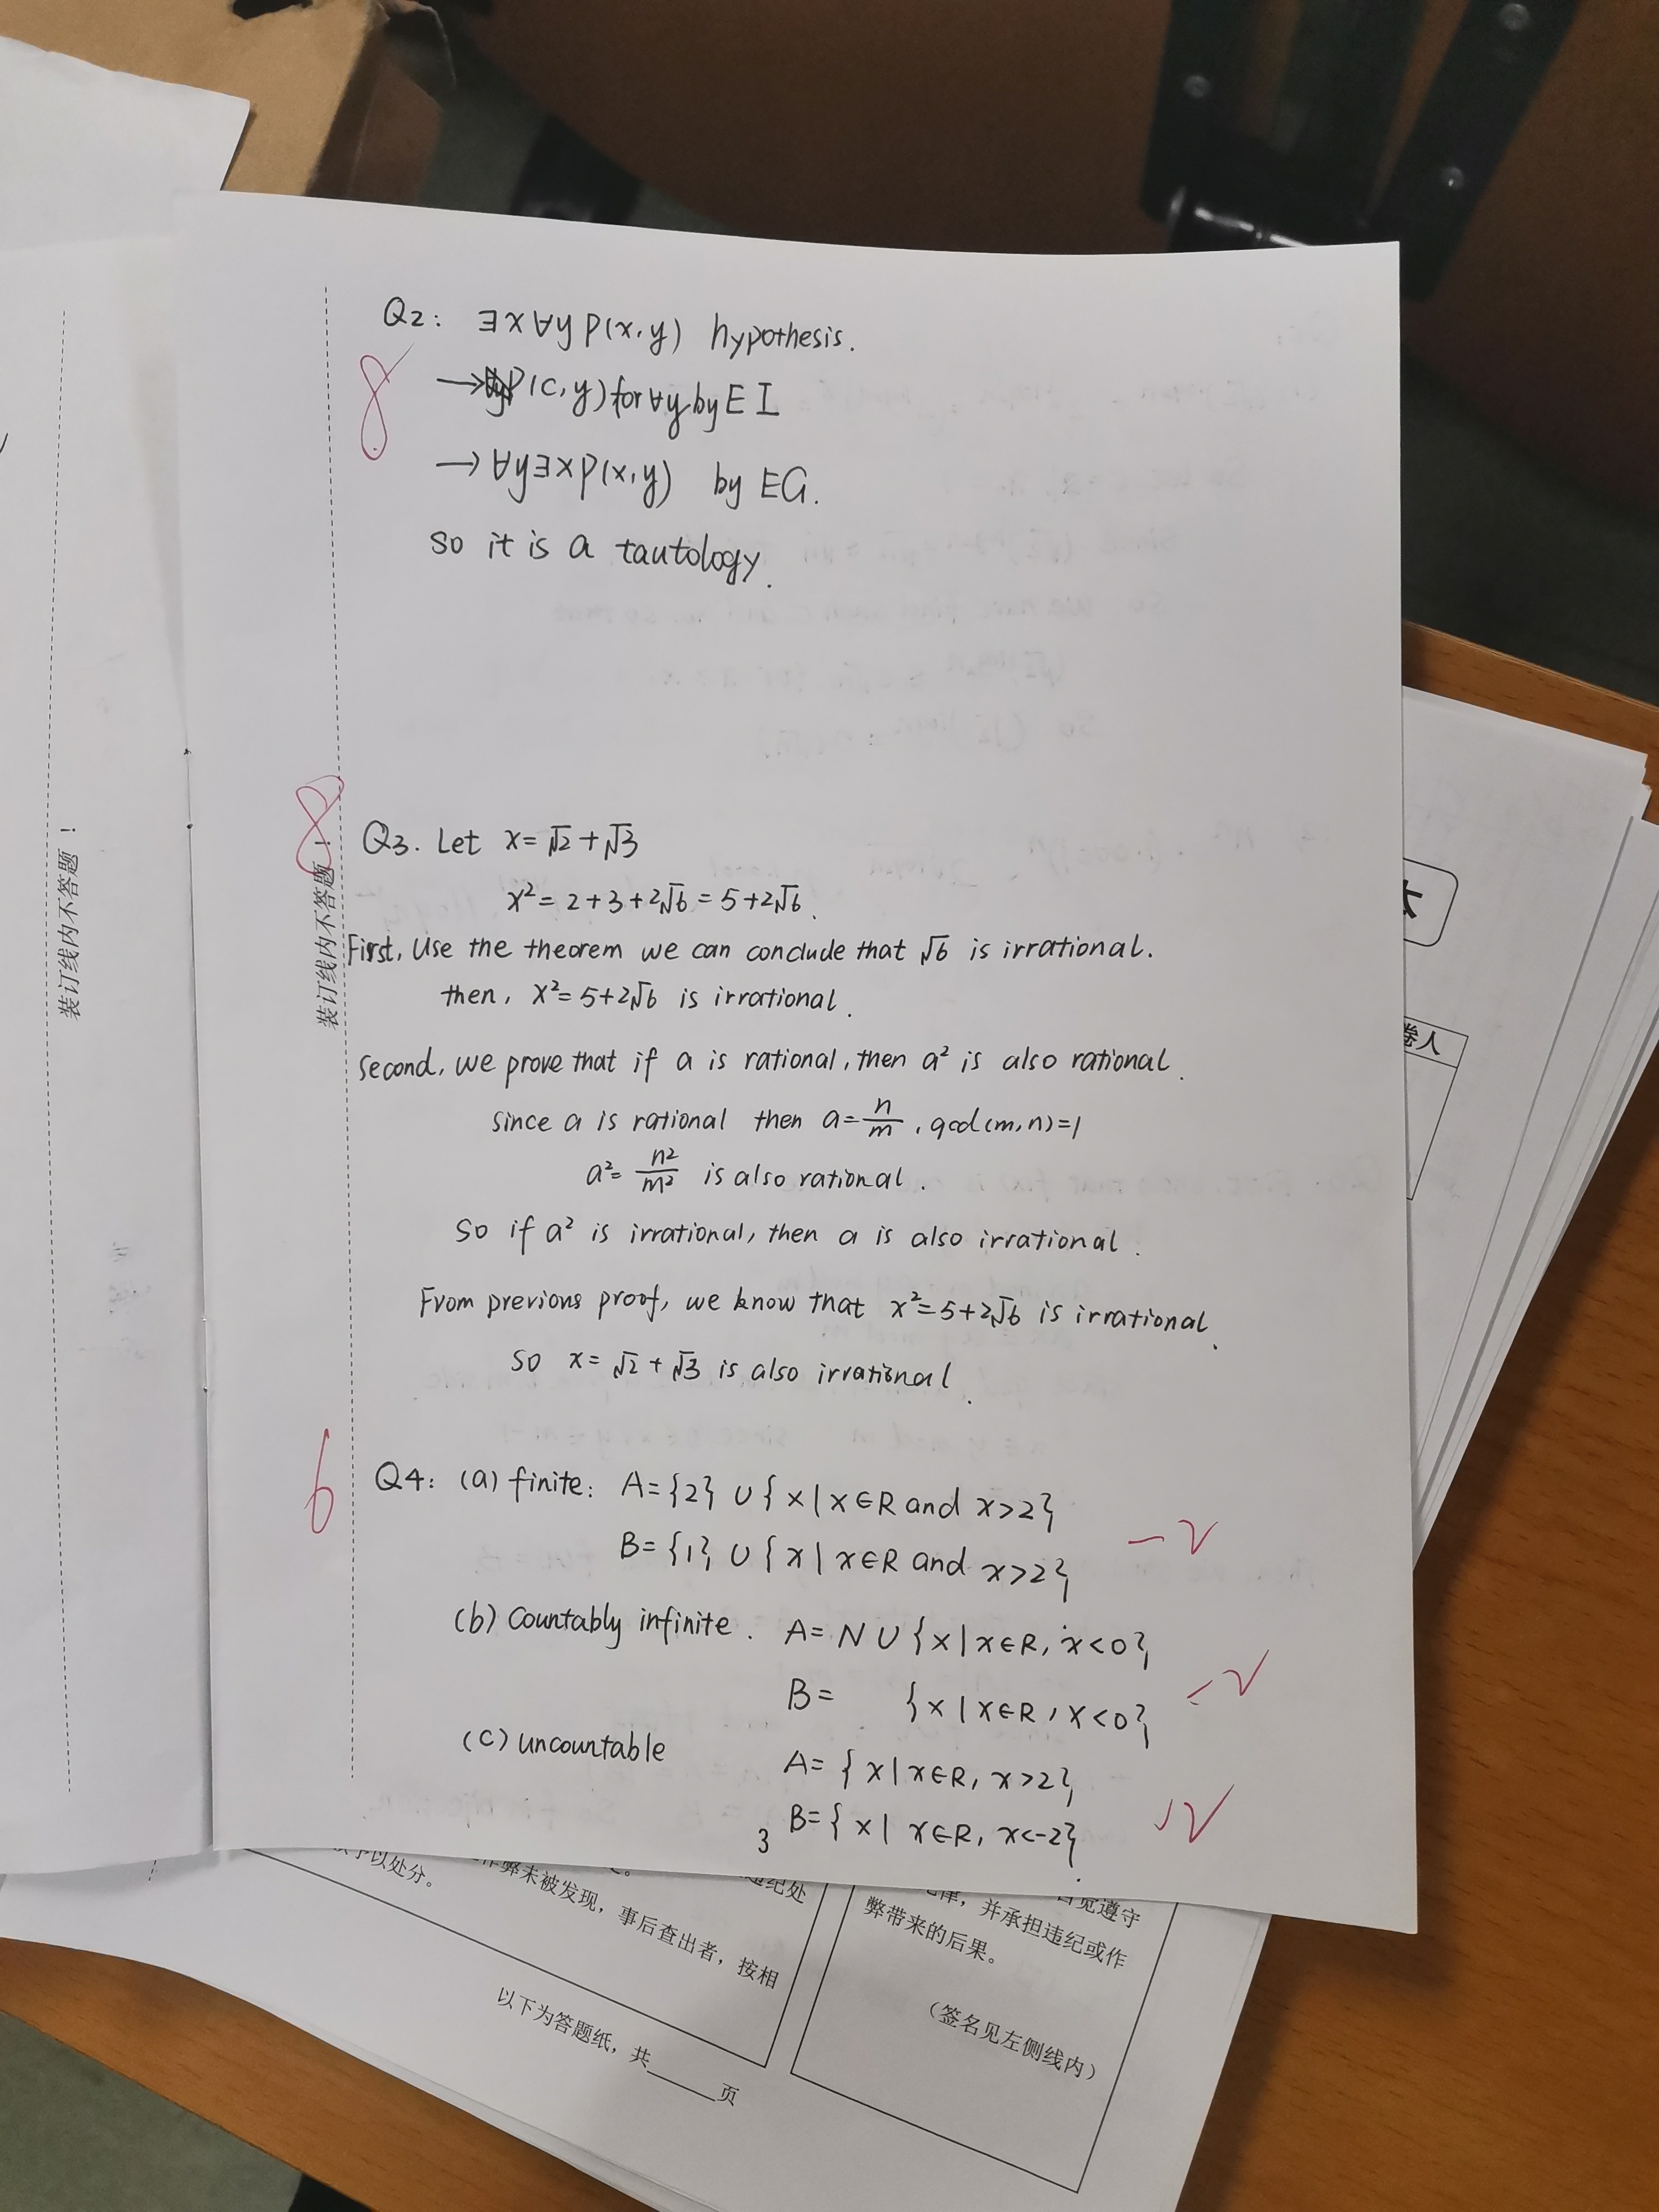 Q2: ∃x∀y P(x,y) hypothesis.
8
→ P(c,y) for ∀y by EI
→ ∀y∃x P(x,y) by EG.
so it is a tautology.
8
Q3. Let x=√2+√3
x²=2+3+2√6=5+2√6.
First, Use the theorem we can conclude that √6 is irrational.
then, x²=5+2√6 is irrational.
second, we prove that if a is rational, then a² is also rational.
since a is rational then a=n/m, gcd(m,n)=1
a²=n²/m² is also rational.
So if a² is irrational, then a is also irrational.
From previous proof, we know that x²=5+2√6 is irrational.
so x=√2+√3 is also irrational.
6
Q4: (a) finite: A={2}∪{x|x∈R and x>2}
B={1}∪{x|x∈R and x>2}
(b) Countably infinite. A=N∪{x|x∈R, x<0}
B= {x|x∈R, x<0}
(c) uncountable
A={x|x∈R, x>2}
B={x|x∈R, x<-2}
3
装订线内不答题!
装订线内不答题!
卷人
予以处分。
弊未被发现，事后查出者，按相
自觉遵守
律，并承担违纪或作
弊带来的后果。
（签名见左侧线内）
以下为答题纸，共____页